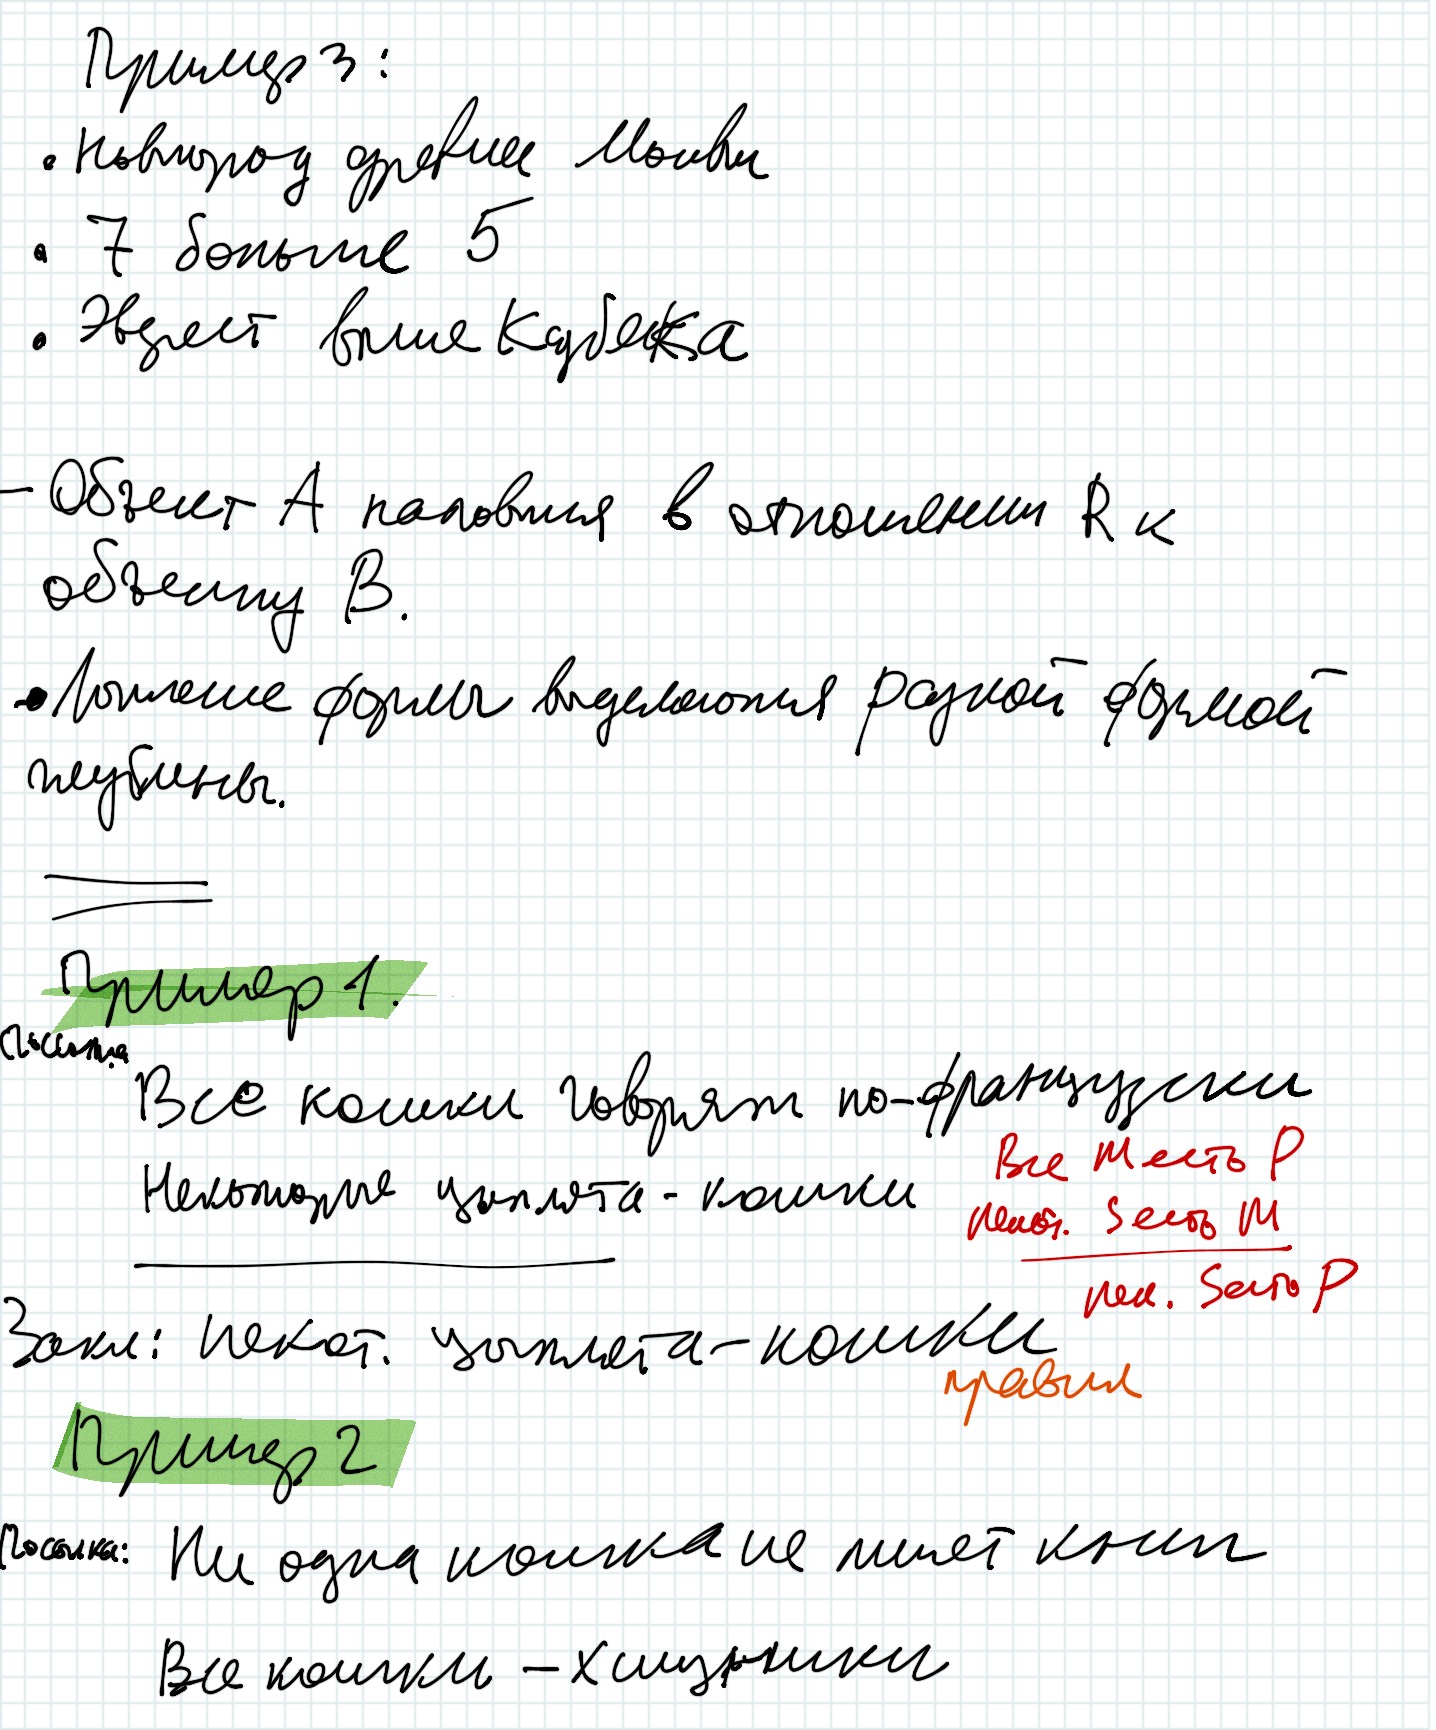 Пример 3:
• Новгород древнее Москвы
• 7 больше 5
• Эверест выше Казбека
- Объект А находится в отношении R к
объекту В.
• Логические формы выделяются разной формой
глубины.
Пример 1.
Посылка
Все кошки говорят по-французски
Некоторые цыплята - кошки
Все М есть Р
некот. S есть М
нек. S есть Р
Закл: некот. цыплята - кошки
правил
Пример 2
Посылка: Ни одна кошка не пишет книг
Все кошки - хищники